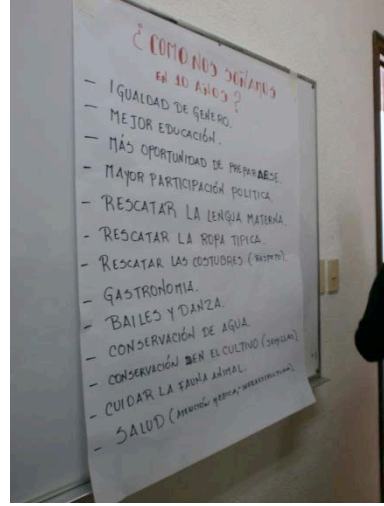 ¿ COMO NOS SOÑAMOS
EN 10 AÑOS ?
- IGUALDAD DE GENERO.
- MEJOR EDUCACIÓN.
- MÁS OPORTUNIDAD DE PREPARARSE.
- MAYOR PARTICIPACIÓN POLITICA.
- RESCATAR LA LENGUA MATERNA.
- RESCATAR LA ROPA TIPICA.
- RESCATAR LAS COSTUBRES (RESPETO).
- GASTRONOMIA.
- BAILES Y DANZA.
- CONSERVACIÓN DE AGUA.
- CONSERVACIÓN EN EL CULTIVO (SEMILLAS)
- CUIDAR LA FAUNA ANIMAL.
- SALUD (ATENCIÓN MEDICA, INFRAESTRUCTURA)